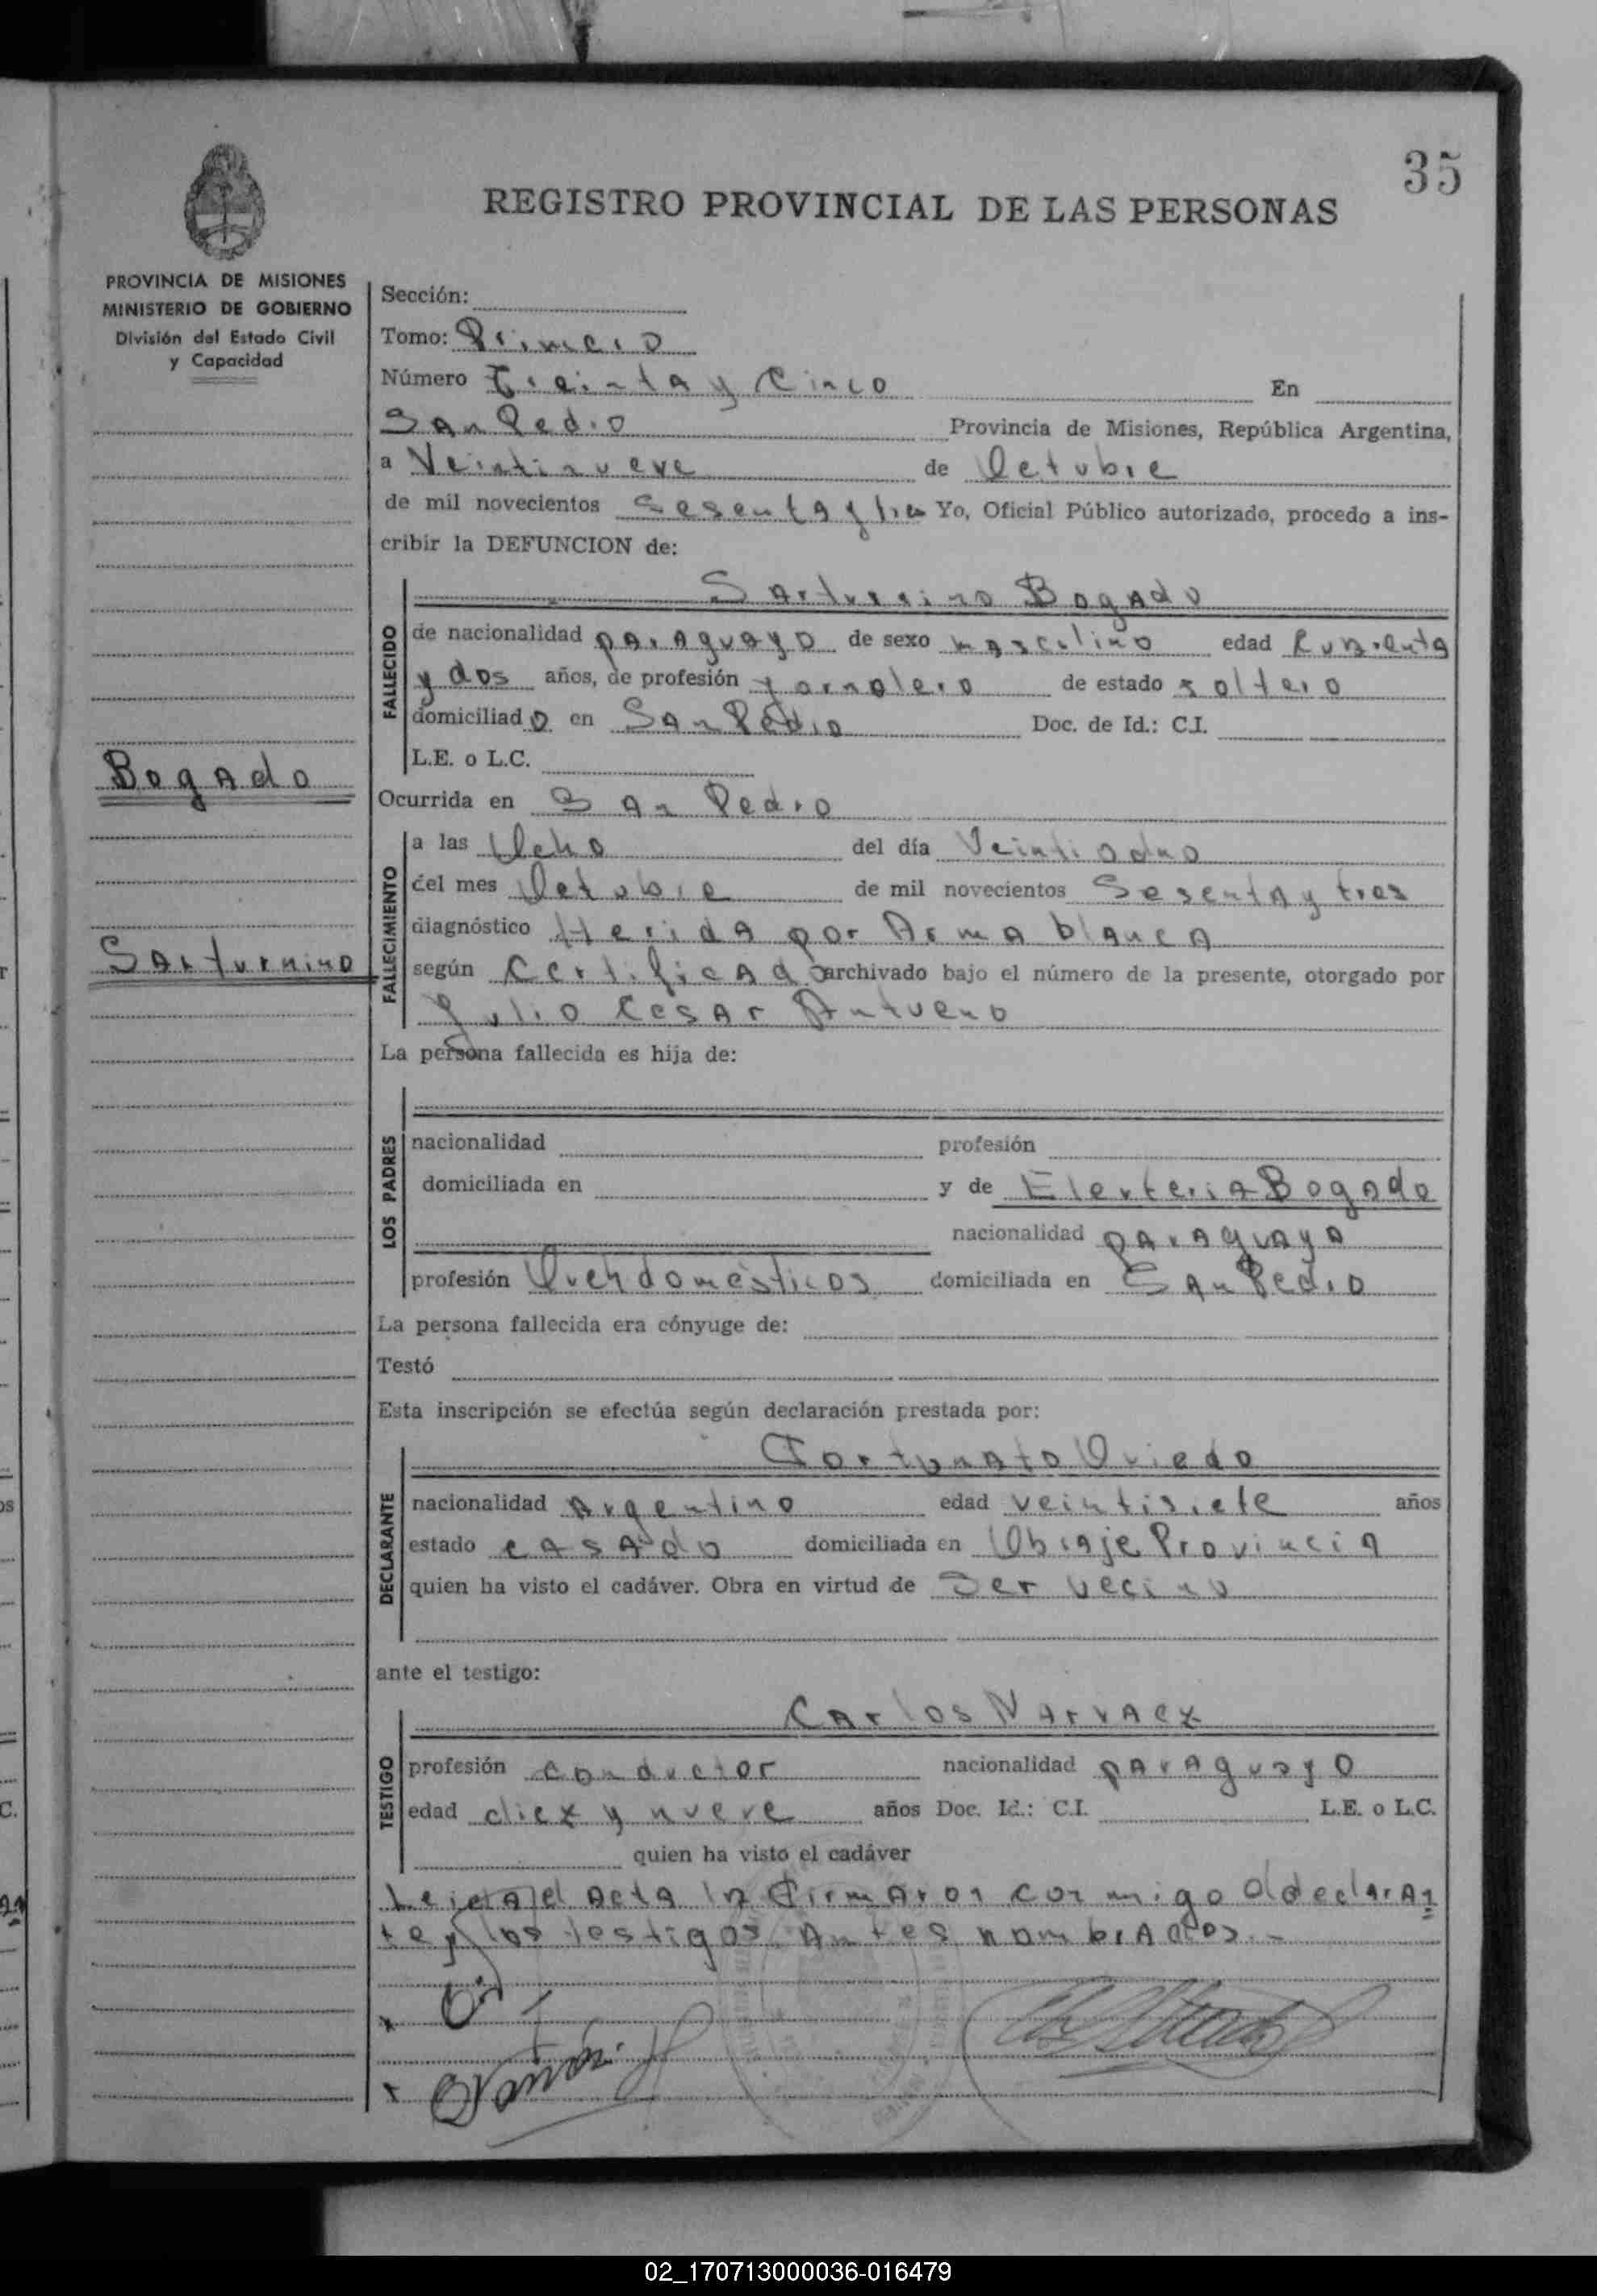 35
REGISTRO PROVINCIAL DE LAS PERSONAS
PROVINCIA DE MISIONES
MINISTERIO DE GOBIERNO
División del Estado Civil
y Capacidad
Bogado
Sarturnino
Sección:
Tomo: Primero
Número Treinta y Cinco En
San Pedro Provincia de Misiones, República Argentina,
a Veintinueve de Octubre
de mil novecientos Sesenta y tres Yo, Oficial Público autorizado, procedo a ins-
cribir la DEFUNCION de:
FALLECIDO
Sarturnino Bogado
de nacionalidad paraguayo de sexo masculino edad Cuarenta
y dos años, de profesión jornalero de estado soltero
domiciliado en San Pedro Doc. de Id.: C.I.
L.E. o L.C.
Ocurrida en San Pedro
FALLECIMIENTO
a las Ocho del día Veintiocho
del mes Octubre de mil novecientos Sesenta y tres
diagnóstico Herida por Arma blanca
según Certificado archivado bajo el número de la presente, otorgado por
Julio Cesar Antueno
La persona fallecida es hija de:
LOS PADRES
nacionalidad profesión
domiciliada en y de Eleuteria Bogado
nacionalidad paraguaya
profesión Quehdomésticos domiciliada en San Pedro
La persona fallecida era cónyuge de:
Testó
Esta inscripción se efectúa según declaración prestada por:
DECLARANTE
Fortunato Oviedo
nacionalidad Argentino edad veintisiete años
estado casado domiciliada en Obraje Provincia
quien ha visto el cadáver. Obra en virtud de Ser vecino
ante el testigo:
TESTIGO
Carlos Narvaez
profesión conductor nacionalidad paraguayo
edad diez y nueve años Doc. Id.: C.I. L.E. o L.C.
quien ha visto el cadáver
Leida el Acta la firmaron conmigo el declaran
te y los testigos antes nombrados.-
02_170713000036-016479